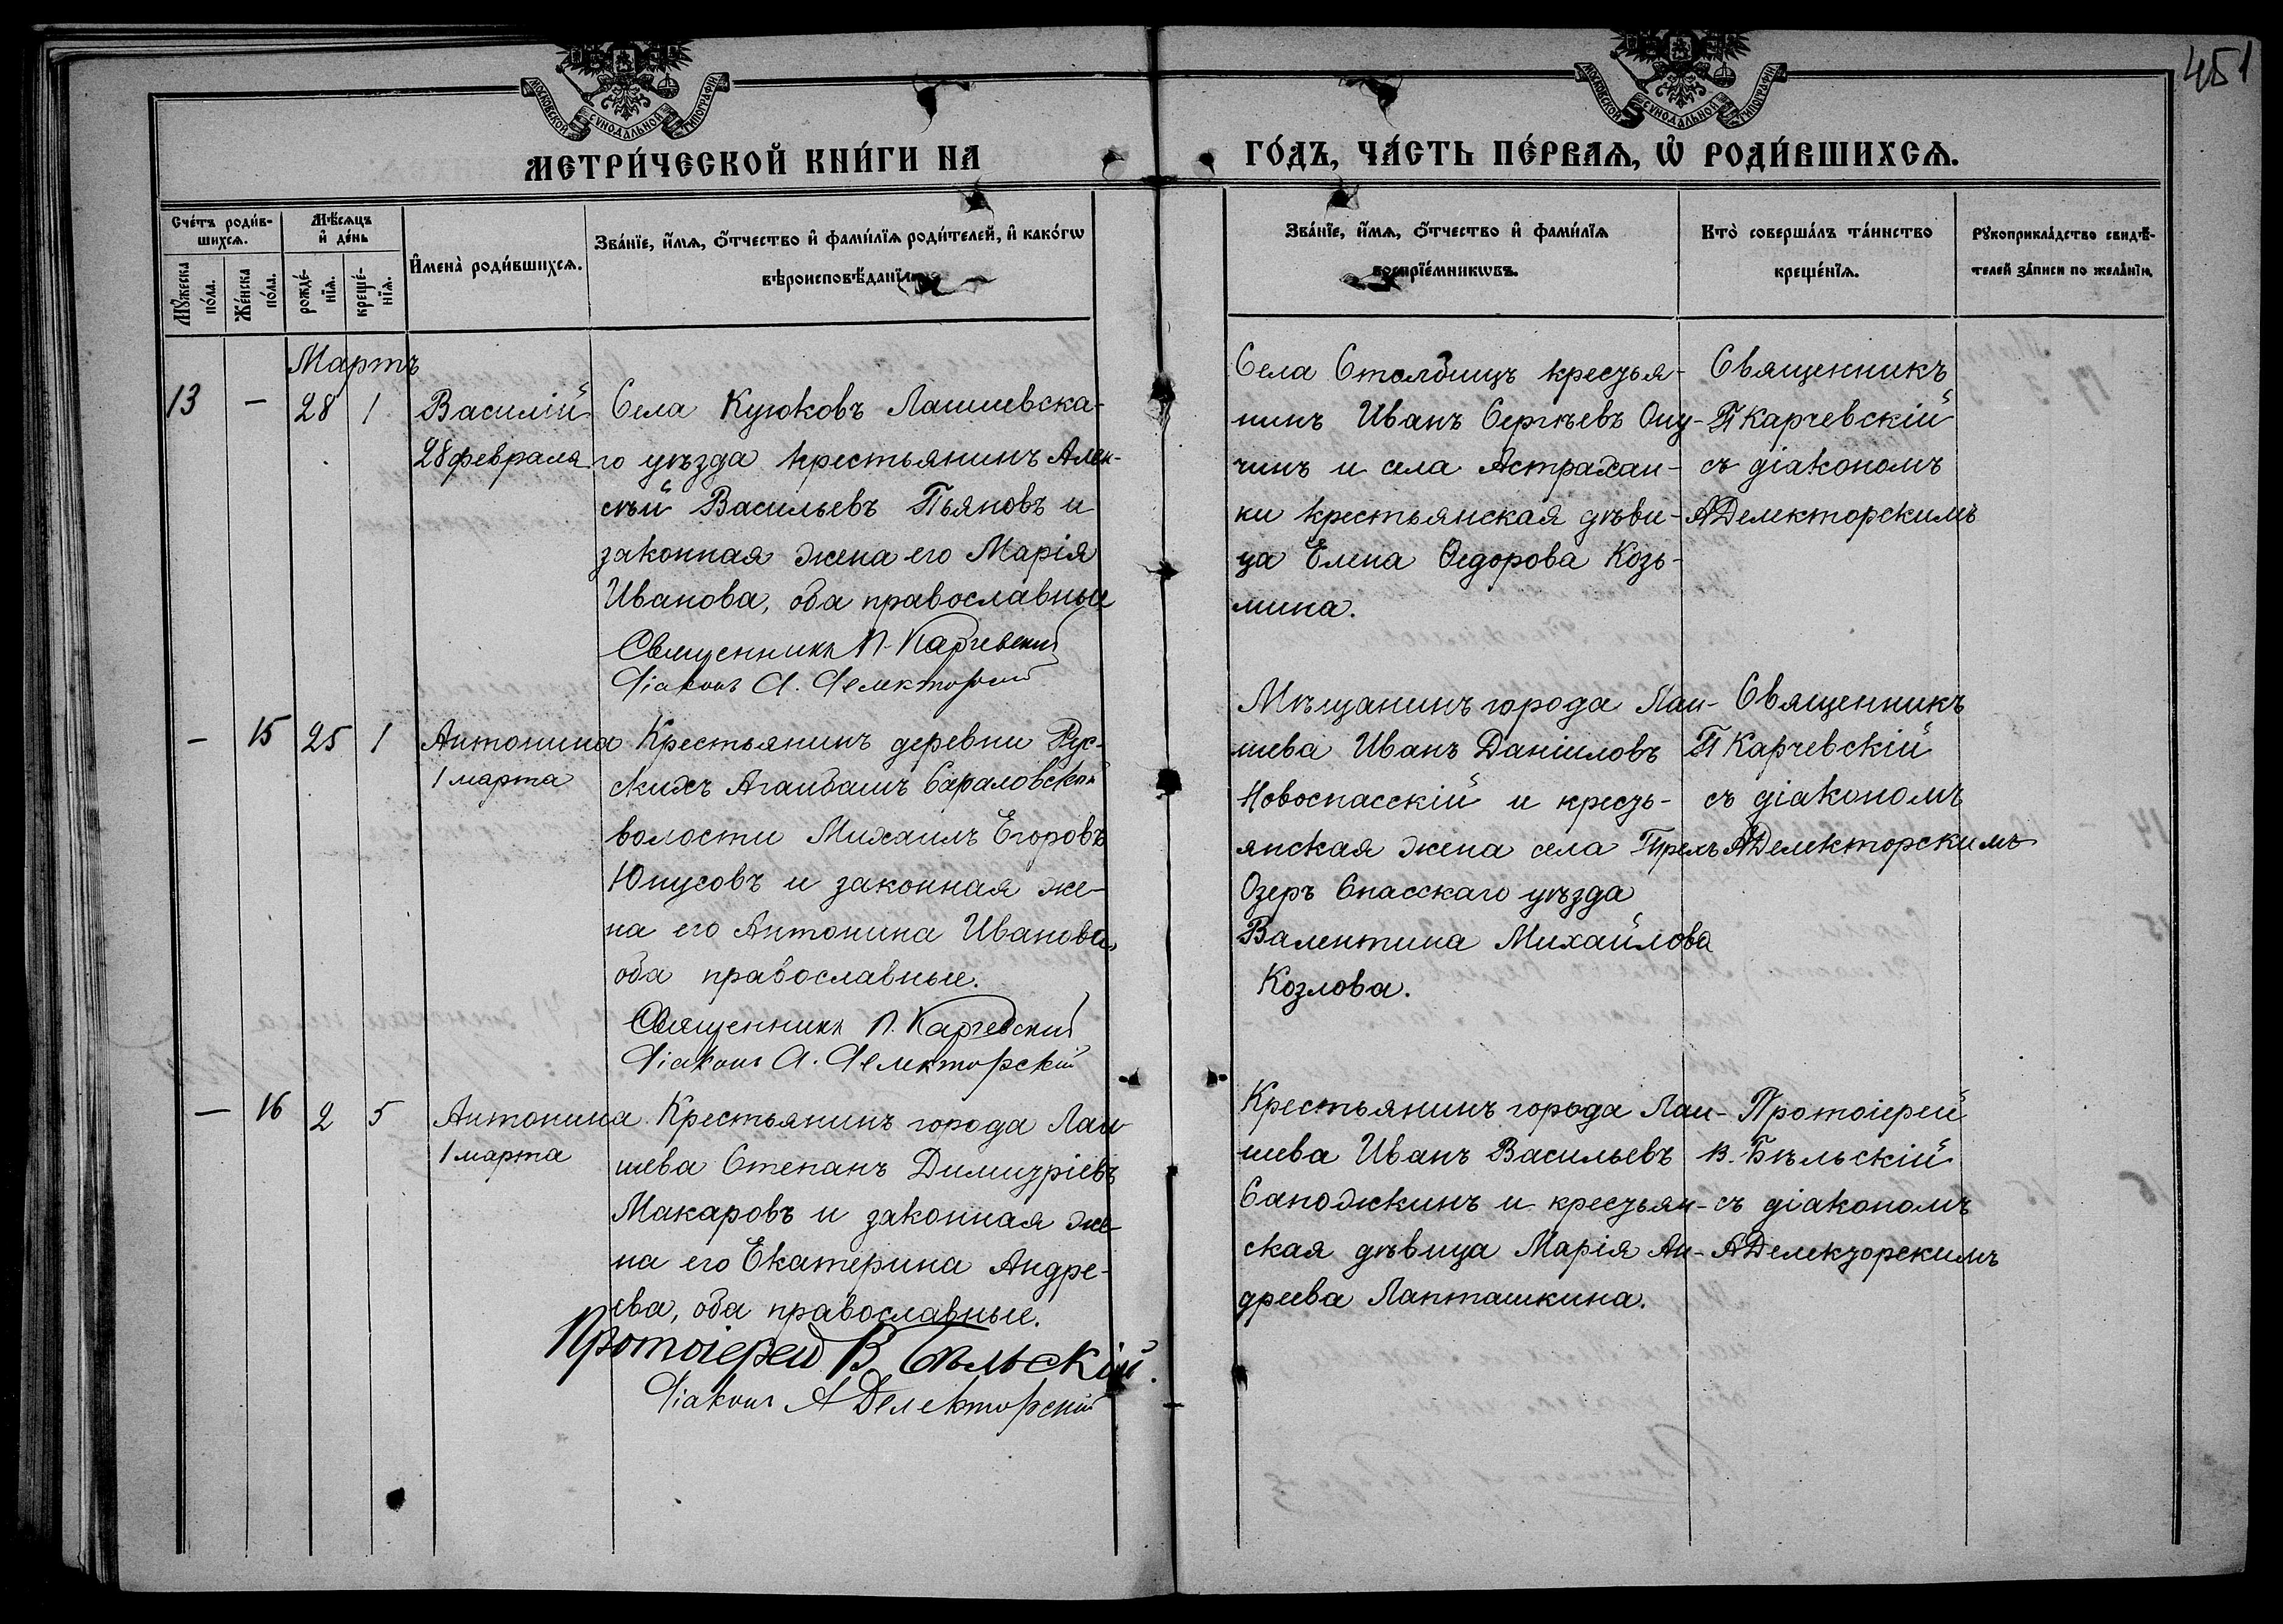 451
МОСКОВСКОЙ СѴНОДАЛЬНОЙ ТИПОГРАФІИ
МОСКОВСКОЙ СѴНОДАЛЬНОЙ ТИПОГРАФІИ
МЕТРИ́ЧЕСКОЙ КНИ́ГИ НА
ГО́ДЪ, ЧА́СТЬ ПЕ́РВАѦ, Ѡ҆ РОДИ́ВШИХСѦ.
Сче́тъ роди́в-
шихсѧ.
Мѣ́сѧцъ
и҆ де́нь
Мꙋ́жеска
по́ла.
Же́нска
по́ла.
рожде́-
нїѧ.
креще́-
нїѧ.
И҆мена̀ роди́вшихсѧ.
Зва́нїе, и҆́мѧ, ѻ҆́тчество и҆ фами́лїѧ роди́телей, и҆ како́гѡ
вѣроисповѣ́данїѧ.
Зва́нїе, и҆́мѧ, ѻ҆́тчество и҆ фами́лїѧ
воспрїе́мникѡвъ.
Кто̀ соверша́лъ та́инство
креще́нїѧ.
Рꙋкоприкла́дство свидѣ́-
телей за́писи по жела́нїю.
Мартъ
13 — 28 1
Василій
28 февраля
Села Куюковъ Лаишевска-
го уѣзда крестьянинъ Алек-
сѣй Васильевъ Пьяновъ и
законная жена его Марія
Иванова, оба православные
Священникъ П. Карчевскій
Діаконъ А. Делекторскій
Села Столбищъ крестья-
нинъ Иванъ Сергѣевъ Ону-
чинъ и села Астрахан-
ки крестьянская дѣви-
ца Елена Ѳедорова Козь-
мина.
Священникъ
П Карчевскій
съ діакономъ
А Делекторскимъ
— 15 25 1
Антонина
1 марта
Крестьянинъ деревни Рус-
скихъ Агайбашъ Сараловской
волости Михаилъ Егоровъ
Юнусовъ и законная же-
на его Антонина Иванова,
оба православные.
Священникъ П. Карчевскій
Діаконъ А. Делекторскій
Мѣщанинъ города Лаи-
шева Иванъ Даніиловъ
Новоспасскій и кресть-
янская жена села Трехъ
Озеръ Спасскаго уѣзда
Валентина Михайлова
Козлова.
Священникъ
П Карчевскій
съ діакономъ
А Делекторскимъ
— 16 2 5
Антонина
1 марта
Крестьянинъ города Лаи-
шева Степанъ Димитріевъ
Макаровъ и законная же-
на его Екатерина Андре-
ева, оба православные.
Протоіерей В. Бѣльскій.
Діаконъ А Делекторскій
Крестьянинъ города Лаи-
шева Иванъ Васильевъ
Сапожкинъ и крестьян-
ская дѣвица Марія Ан-
дреева Лапташкина.
Протоіерей
В. Бѣльскій
съ діакономъ
А Делекторскимъ